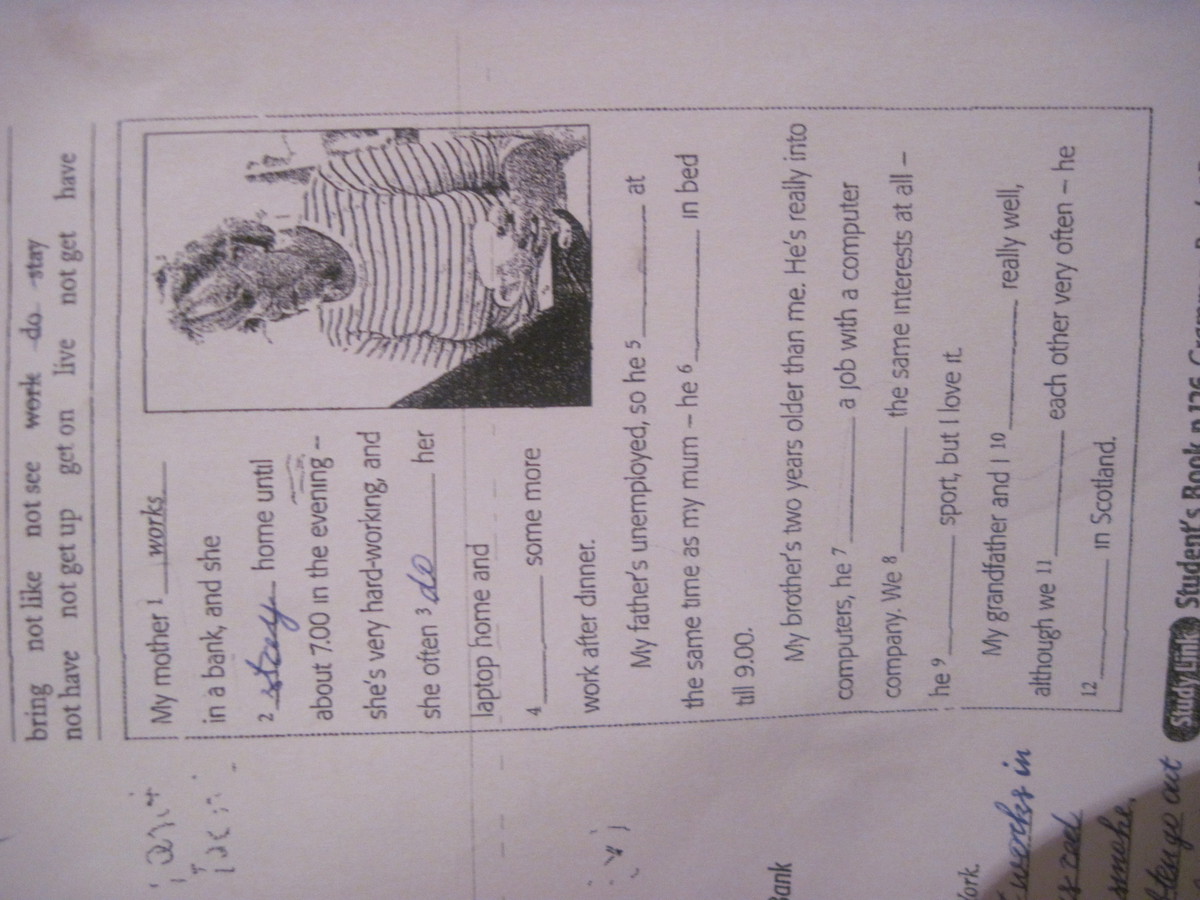 bring not like not see work do stay
not have not get up get on live not get have
My mother 1 works
in a bank, and she
2 stay home until
about 7.00 in the evening –
she's very hard-working, and
she often 3 do her
laptop home and
4 ______ some more
work after dinner.
My father's unemployed, so he 5 ______ at
the same time as my mum – he 6 ______ in bed
till 9.00.
My brother's two years older than me. He's really into
computers, he 7 ______ a job with a computer
company. We 8 ______ the same interests at all –
he 9 ______ sport, but I love it.
My grandfather and I 10 ______ really well,
although we 11 ______ each other very often – he
12 ______ in Scotland.
Study Link Student's Book p.126
Bank
works in
smoke.
go out